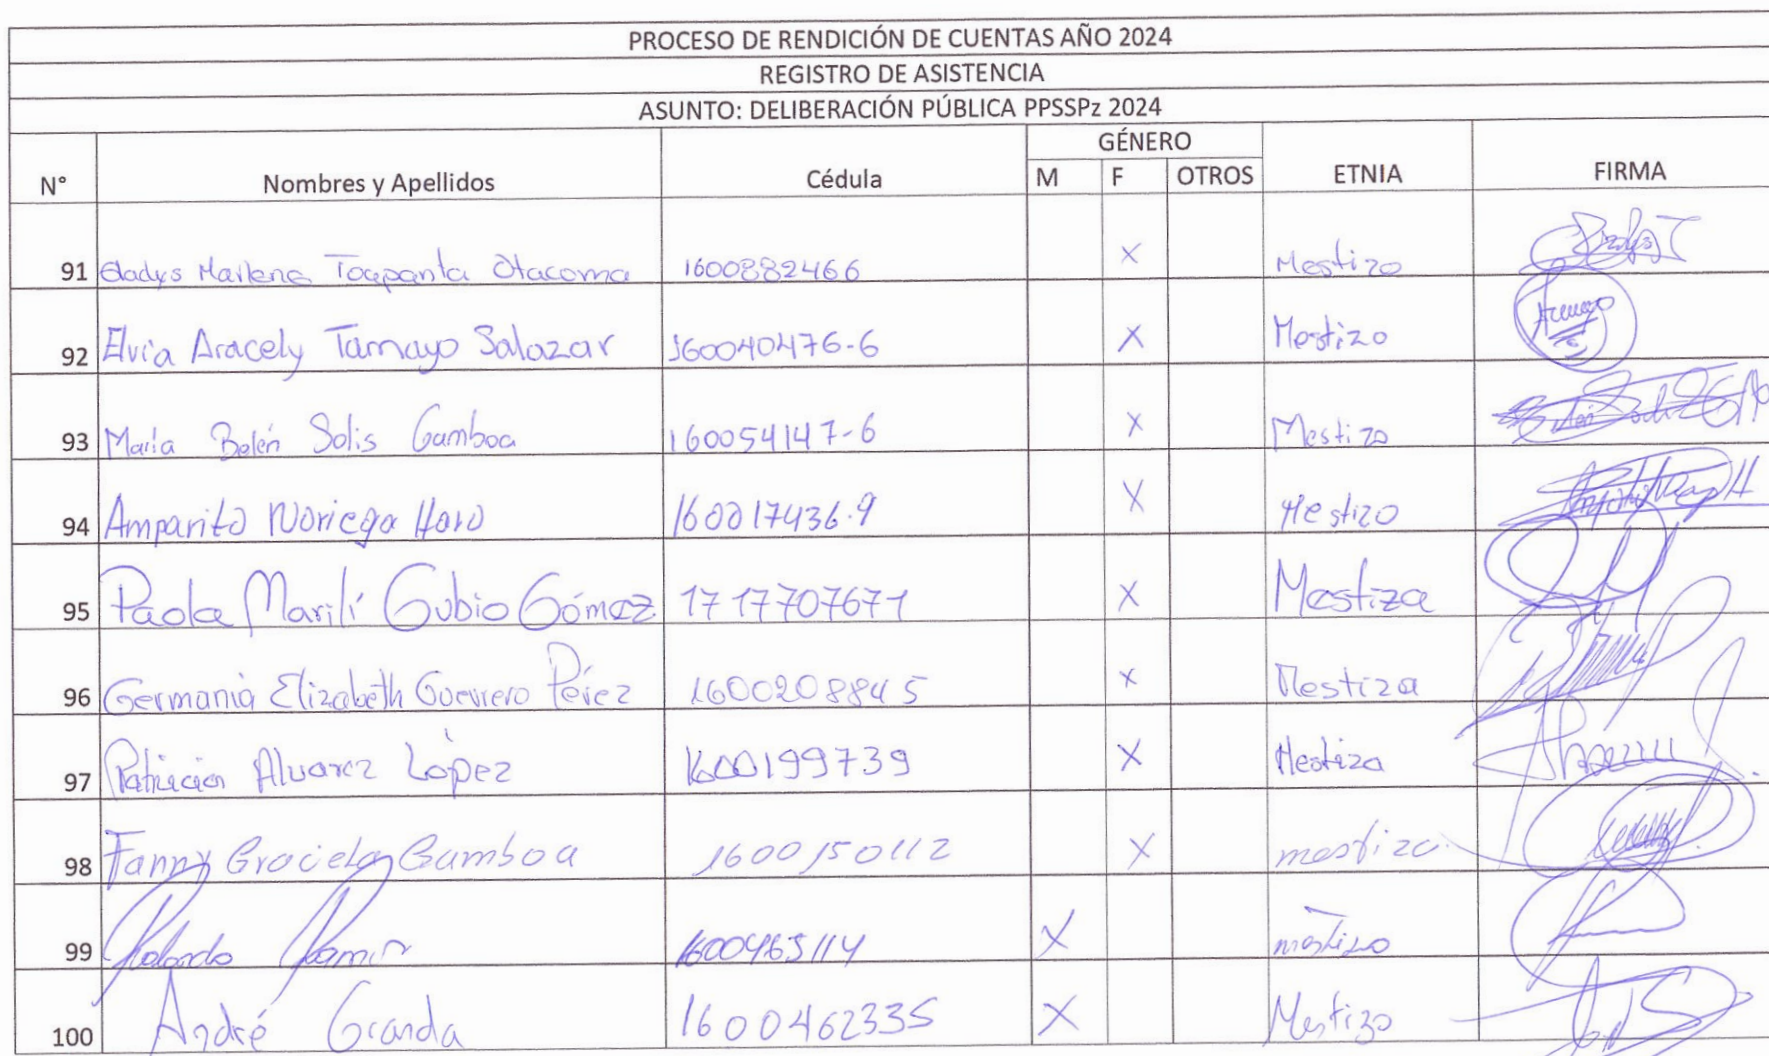 PROCESO DE RENDICIÓN DE CUENTAS AÑO 2024
REGISTRO DE ASISTENCIA
ASUNTO: DELIBERACIÓN PÚBLICA PPSSPz 2024
GÉNERO
N° Nombres y Apellidos Cédula M F OTROS ETNIA FIRMA
91 Gladys Marlene Toapanta Otacoma 1600882466 X Mestizo
92 Elvia Aracely Tamayo Salazar 160040476-6 X Mestizo
93 María Belén Solis Gamboa 160054147-6 X Mestizo
94 Amparito Noriega Haro 160017436-9 X Mestizo
95 Paola Marilí Gubio Gómez 1717707671 X Mestiza
96 Germania Elizabeth Guerrero Pérez 1600208845 X Mestiza
97 Patricia Alvarez López 1600199739 X Mestiza
98 Fanny Graciela Gamboa 1600150112 X mestizo
99 Rolando 1600463114 X mestizo
100 André Granda 1600462335 X Mestizo